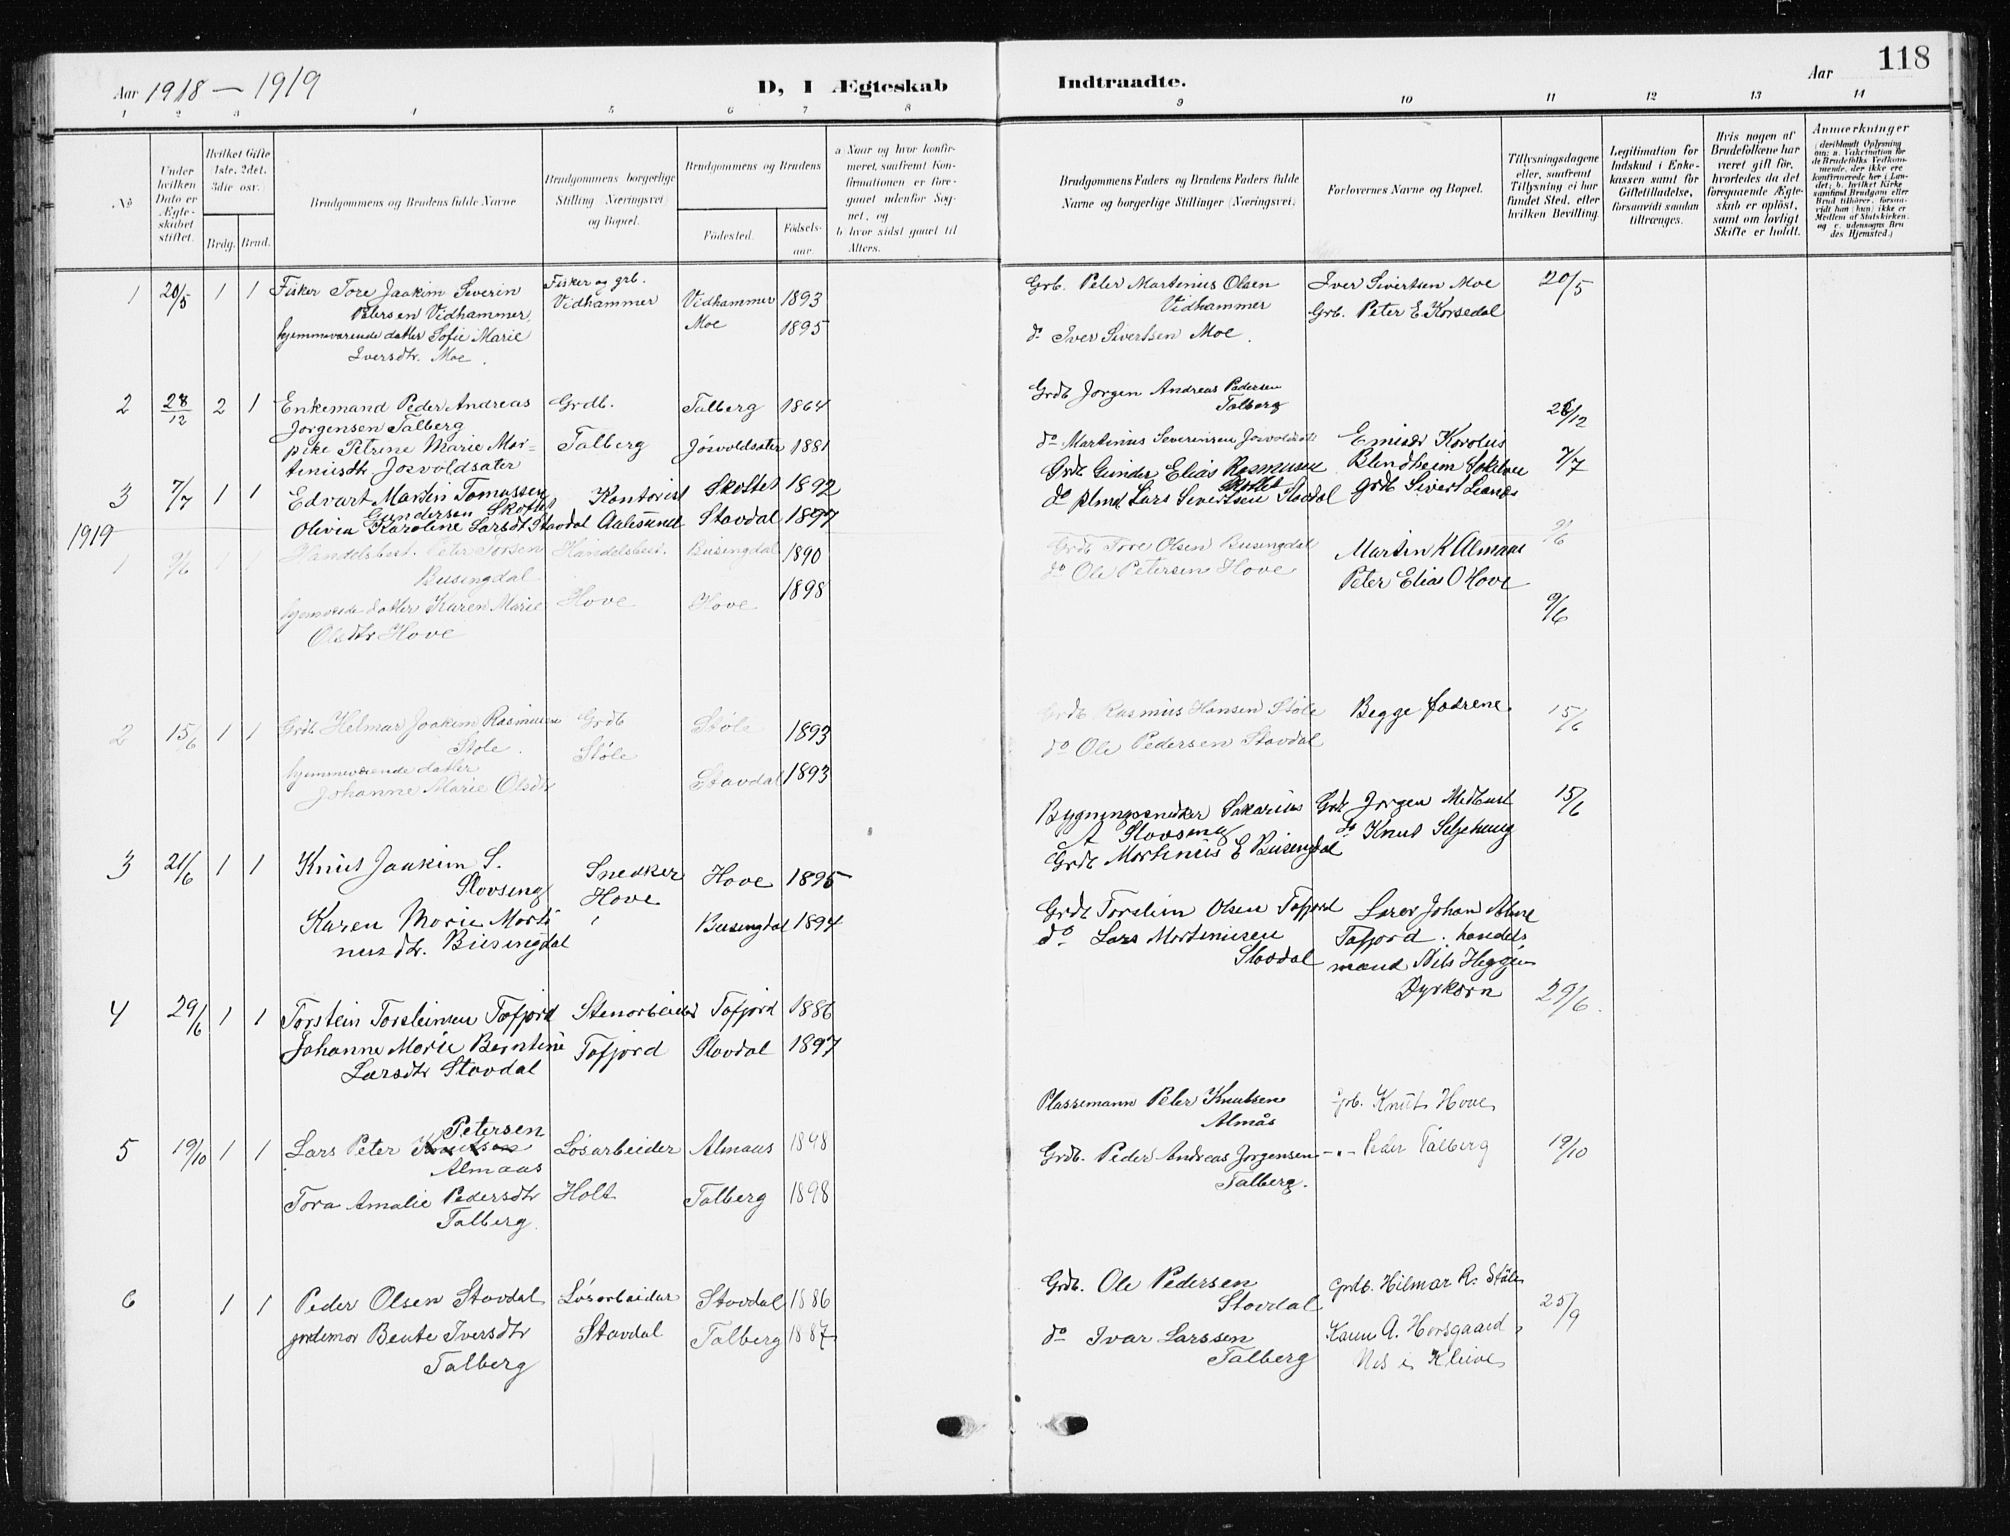 118
Aar 1918 — 1919
D, I Ægteskab Indtraadte.
Aar
1 2 3 4 5 6 7 8 9 10 11 12 13 14
No
Under hvilken Dato er Ægteskabet stiftet.
Hvilket Gifte 1ste. 2det. 3die osv.
Brdg. Brud.
Brudgommens og Brudens fulde Navne
Brudgommens borgerlige Stilling (Næringsvei) og Bopæl.
Brudgommens og Brudens
Fødested.
Fødselsaar
a Naar og hvor konfirmeret, saafremt Konfirmationen er foregaaet udenfor Sognet, og
b hvor sidst gaaet til Alters.
Brudgommens Faders og Brudens Faders fulde Navne og borgerlige Stillinger (Næringsvei)
Forlovernes Navne og Bopæl.
Tillysningsdagene eller, saafremt Tillysning ei har fundet Sted, efter hvilken Bevilling.
Legitimation for Indskud i Enkekassen samt for Giftetilladelse, forsaavidt saadan tiltrænges.
Hvis nogen af Brudefolkene har været gift før, hvorledes da det foregaaende Ægteskab er opløst, samt om lovligt Skifte er holdt.
Anmærkninger
(deriblandt Oplysning om: a. Vakcination for de Brudefolks Vedkommende, der ikke ere konfirmerede her i Landet; b. hvilket Kirkesamfund Brudgom eller Brud tilhører, forsaavidt han (hun) ikke er Medlem af Statskirken, og c. udensogns Brudes Hjemsted.)
1 20/5 1 1 Fisker Tore Joakim Severin
Petersen Vidhammer,
hjemmeværende datter Sofie Marie
Iversdtr. Moe.
Fisker og grb.
Vidhammer
Vidhammer 1893
Moe 1895
Grb. Peter Martinus Olsen
Vidhammer
do Iver Sivertsen Moe.
Iver Sivertsen Moe
Grb. Peter E Korsedal
20/5
2 28/12 2 1 Enkemand Peder Andreas
Jørgensen Talberg
pike Petrine Marie Mar-
tinusdtr Josvoldsæter
Grdb.
Talberg
Talberg 1864
Jøsvoldsæter 1881
Grdb Jørgen Andreas Pedersen
Talberg
do Martinus Severinsen
Emissær Karolus
Blindheim
28/12
3 7/7 1 1 Edvart Martin Tomassen
Gundersen Skoftet
Olivia Karoline Larsdtr Stavdal
Kontorist
Aalesund
Skottet 1892
Stavdal 1897
Grdb Gunder Elias Rasmussen
Skottet
do Lars Sivertsen Stavdal
Grdb Sivert
7/7
1919
1 9/6 1 1 Handelsbest. Peter Torsen
Busengdal
hjemmv. datter Karen Marie
Olsdtr Hove
Handelsbest.
Hove
Busengdal 1890
Hove 1898
Grdb Tore Olsen Busengdal
do Ole Petersen Hove
Martin K Almaas
Peter Elias O Hove
9/6
9/6
2 15/6 1 1 Grdb Helmar Joakim Rasmussen
Støle.
hjemmeværende datter
Johanne Marie Olsdtr
Grdb
Støle
Støle 1893
Stavdal 1893
Grdb Rasmus Hansen Støle
do Ole Pedersen Stavdal
Begge fædrene.
15/6
3 21/6 1 1 Knut Joakim S.
Slovseng
Karen Marie Marti
nusdtr. Busengdal
Snedker
Hove
Hove 1895
Busengdal 1894
Bygningssnedker Sakarias
A Slovseng
Grdb Martinus E Busengdal
Grdb Jørgen Medhust
do Knut Seljehaug
15/6
4 29/6 1 1 Torstein Torsteinsen Tafjord
Johanne Marie Berntine
Larsdtr Stavdal
Stenarbeider
Tafjord
Tafjord 1886
Stavdal 1897
Grdb Torstein Olsen Tafjord
do Lars Martinusen
Stavdal
Lærer Johan
Tafjord. handels
mand Nils Heggen
Dyrkorn
29/6.
5 19/10 1 1 Lars Peter Knutsen Petersen
Almaas
Tora Amalie Pedersdtr
Talberg.
Løsarbeider
Holt
Almaas 1898
Talberg 1898
Plassemann Peter Knutsen
Almås
Grdb. Peder Andreas Jørgensen
Talberg.
Grb. Knut Hove
-"- Peder Talberg
19/10
6 1 1 Peder Olsen Stavdal
jordmor Beate Iversdtr
Talberg
Løsarbeider
Stavdal
Stavdal 1886
Talberg 1887
Grdb. Ole Pedersen
Stavdal
do Ivar Larssen
Talberg
Grdb. Hilmar R. Støle
A. Horsgaard
Kleive
25/9